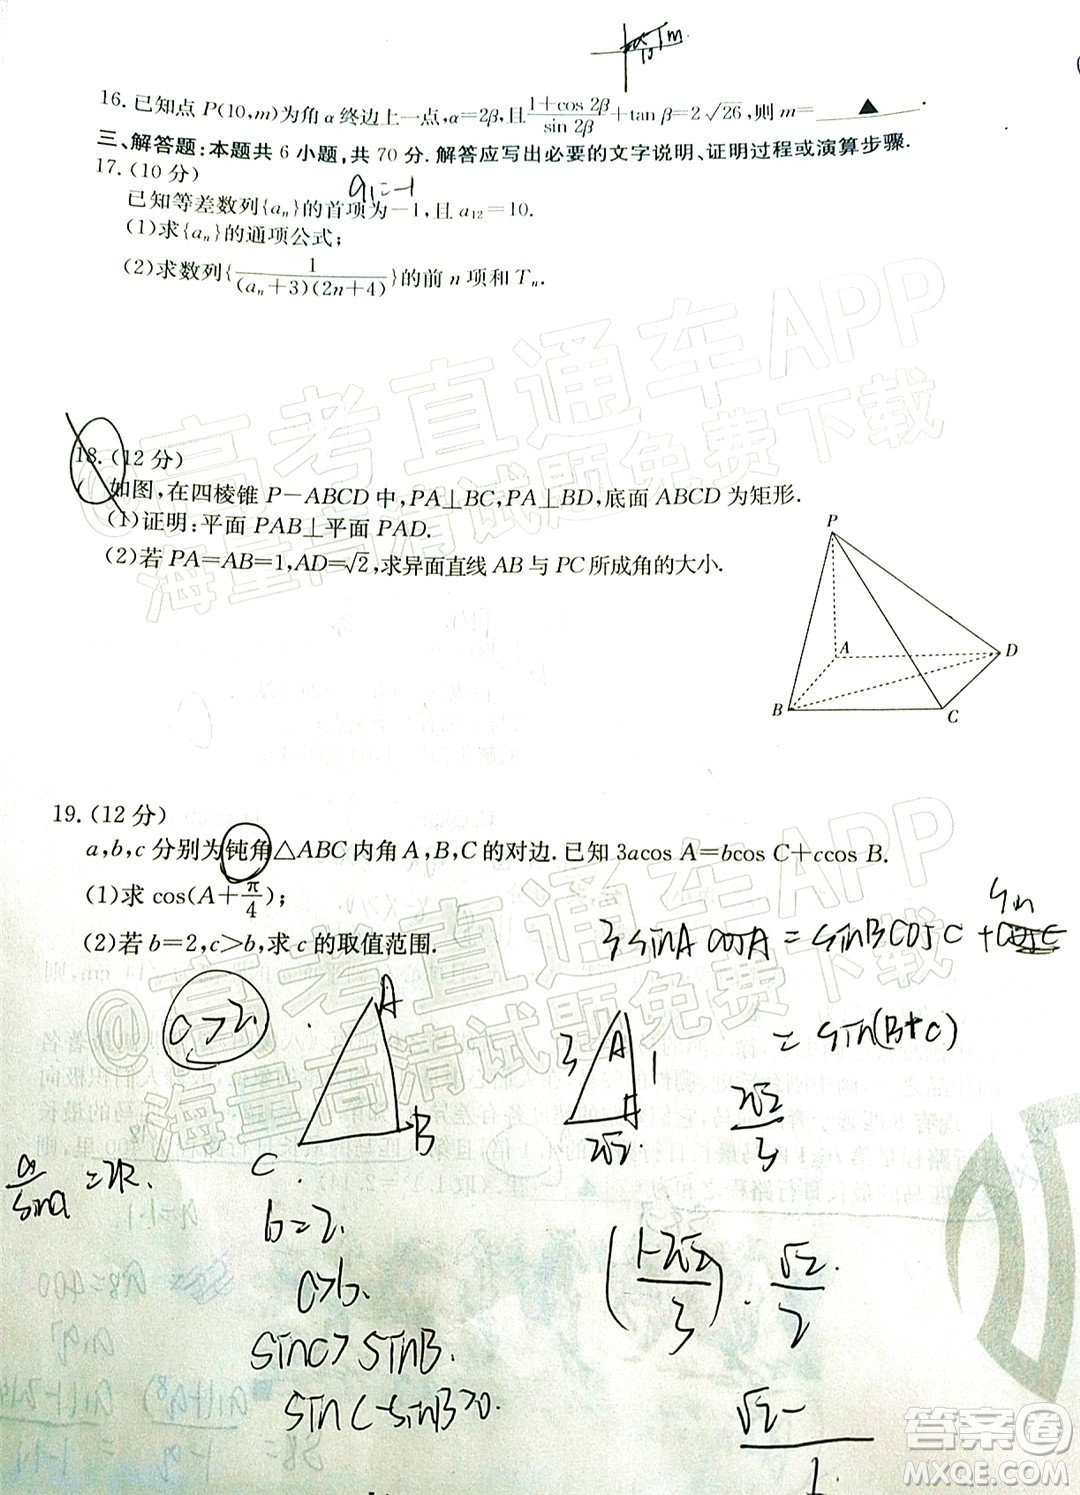 16. 已知点 P(10,m)为角 α 终边上一点,α=2β,且(1+cos 2β)/(sin 2β)+tan β=2√26,则 m=▲.
三、解答题:本题共 6 小题,共 70 分. 解答应写出必要的文字说明、证明过程或演算步骤.
17. (10 分)
a₁=-1
已知等差数列{aₙ}的首项为-1,且 a₁₂=10.
(1)求{aₙ}的通项公式;
(2)求数列{1/((aₙ+3)(2n+4))}的前 n 项和 Tₙ.
18. (12 分)
如图,在四棱锥 P-ABCD 中,PA⊥BC,PA⊥BD,底面 ABCD 为矩形.
(1)证明:平面 PAB⊥平面 PAD.
(2)若 PA=AB=1,AD=√2,求异面直线 AB 与 PC 所成角的大小.
P
A
D
B
C
19. (12 分)
a,b,c 分别为钝角△ABC 内角 A,B,C 的对边. 已知 3acos A=bcos C+ccos B.
(1)求 cos(A+π/4);
(2)若 b=2,c>b,求 c 的取值范围.
3sinA cosA = sinBcosC +
= sin(B+C)
c>2.
A
B
C
3
A
1
2√2
2√2/3
a/sinA =2R.
b=2.
c>b.
sinC>sinB.
sinC-sinB>0.
(1-2√2/3)·√2/2
高考直通车APP
@高考直通车APP
海量高清试题免费下载
答案圈
MXQE.COM